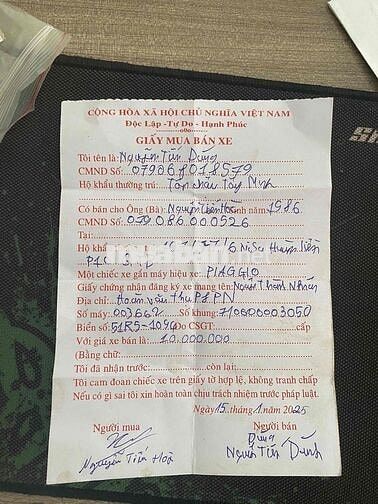 CỘNG HÒA XÃ HỘI CHỦ NGHĨA VIỆT NAM
Độc Lập -Tự Do - Hạnh Phúc
GIẤY MUA BÁN XE
Tôi tên là: Nguyễn Tiến Dũng
CMND Số: 079068018579
Hộ khẩu thường trú: Tân Châu Tây Ninh
Có bán cho Ông (Bà): Nguyễn Tiến Hoà sinh năm: 1986
CMND Số: 079086000526
Tại:
Hộ khẩu
Một chiếc xe gắn máy hiệu xe: PIAGGIO
Giấy chứng nhận đăng ký xe mang tên: Nguyễn Thành Nhân
Địa chỉ: Hoàng văn thụ P9 PN
Số máy: 003662 Số khung: 710600003050
Biển số: 51R5-1090 Do CSGT: cấp
Với giá xe bán là: 10.000.000
(Bằng chữ)
Tôi đã nhận trước: còn lại:
Tôi cam đoan chiếc xe trên giấy tờ hợp lệ, không tranh chấp
Nếu có gì sai tôi xin hoàn toàn chịu trách nhiệm trước pháp luật.
Ngày 15 tháng 1 năm 2025
Người mua Người bán
Dũng
Nguyễn Tiến Hoà Nguyễn Tiến Dũng